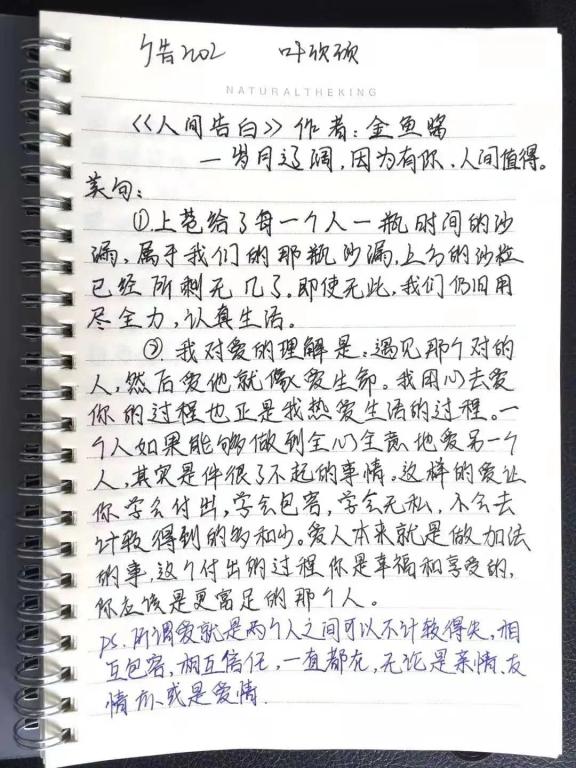 广告2202 叶欣硕
NATURALTHEKING
《《人间告白》》作者：金鱼酱
—岁月辽阔，因为有你，人间值得。
美句：
①上苍给了每一个人一瓶时间的沙
漏，属于我们的那瓶沙漏，上面的沙粒
已经所剩无几了。即使无此，我们仍旧用
尽全力，认真生活。
②我对爱的理解是：遇见那个对的
人，然后爱他就像爱生命。我用心去爱
你的过程也正是我热爱生活的过程。一
个人如果能够做到全心全意地爱另一个
人，其实是件很了不起的事情。这样的爱让
你学会付出，学会包容，学会无私，不会去
计较得到的多和少。爱人本来就是做加法
的事，这个付出的过程你是幸福和享受的，
你应该是更富足的那个人。
ps.所谓爱就是两个人之间可以不计较得失，相
互包容，相互信任，一直都在，无论是亲情、友
情，或是爱情.